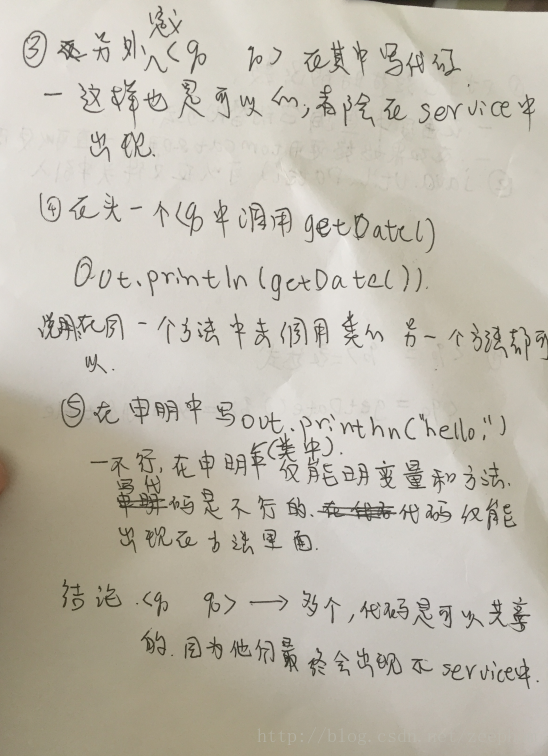 ③ 另外定义<% %> 在其中写代码
一 这样也是可以的,都除在service中
出现.
④ 在头一个<%中调用getDate()
Out.println(getDate()).
说明在同一个方法中去调用类的另一个方法都可
以.
⑤ 在申明中写out.println("hello;")
一不行,在申明(类中).仅能申明变量和方法.
写代码是不行的.代码仅能
出现在方法里面.
结论.<% %> → 多个,代码是可以共享
的.因为他们最终会出现在service中.
http://blog.csdn.net/